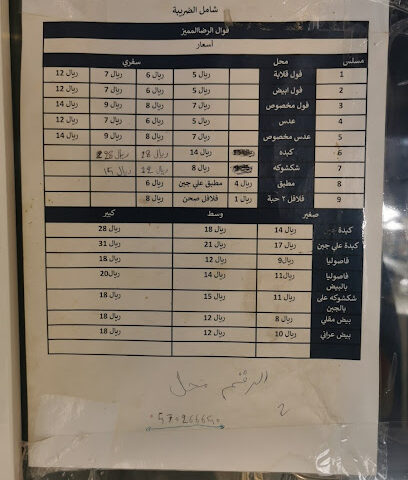 شامل الضريبة
فوال الرضاالمميز
أسعار
مسلس محل سفري
1 فول قلابة 5 ريال 6 ريال 7 ريال 12 ريال
2 فول ابيض 5 ريال 6 ريال 7 ريال 12 ريال
3 فول مخصوص 7 ريال 8 ريال 9 ريال 14 ريال
4 عدس 5 ريال 6 ريال 7 ريال 12 ريال
5 عدس مخصوص 7 ريال 8 ريال 9 ريال 14 ريال
6 كبده 14 ريال 18 ريال ريال
7 شكشوكه 8 ريال 12 ريال 15 ريال
8 مطبق 4 ريال مطبق علي جبن 6 ريال
9 فلافل ٢ حبة 1 ريال فلافل صحن 8 ريال
صغير وسط كبير
كبدة 14 ريال 18 ريال 28 ريال
كبدة علي جبن 17 ريال 21 ريال 31 ريال
فاصوليا 9ريال 12 ريال 18 ريال
فاصوليا بالبيض 11ريال 14 ريال 20ريال
شكشوكه على بالجبن 11 ريال 15 ريال 18 ريال
بيض مقلي 8 ريال 12 ريال 18 ريال
بيض عراني 10 ريال 12 ريال 18 ريال
الرقم محل